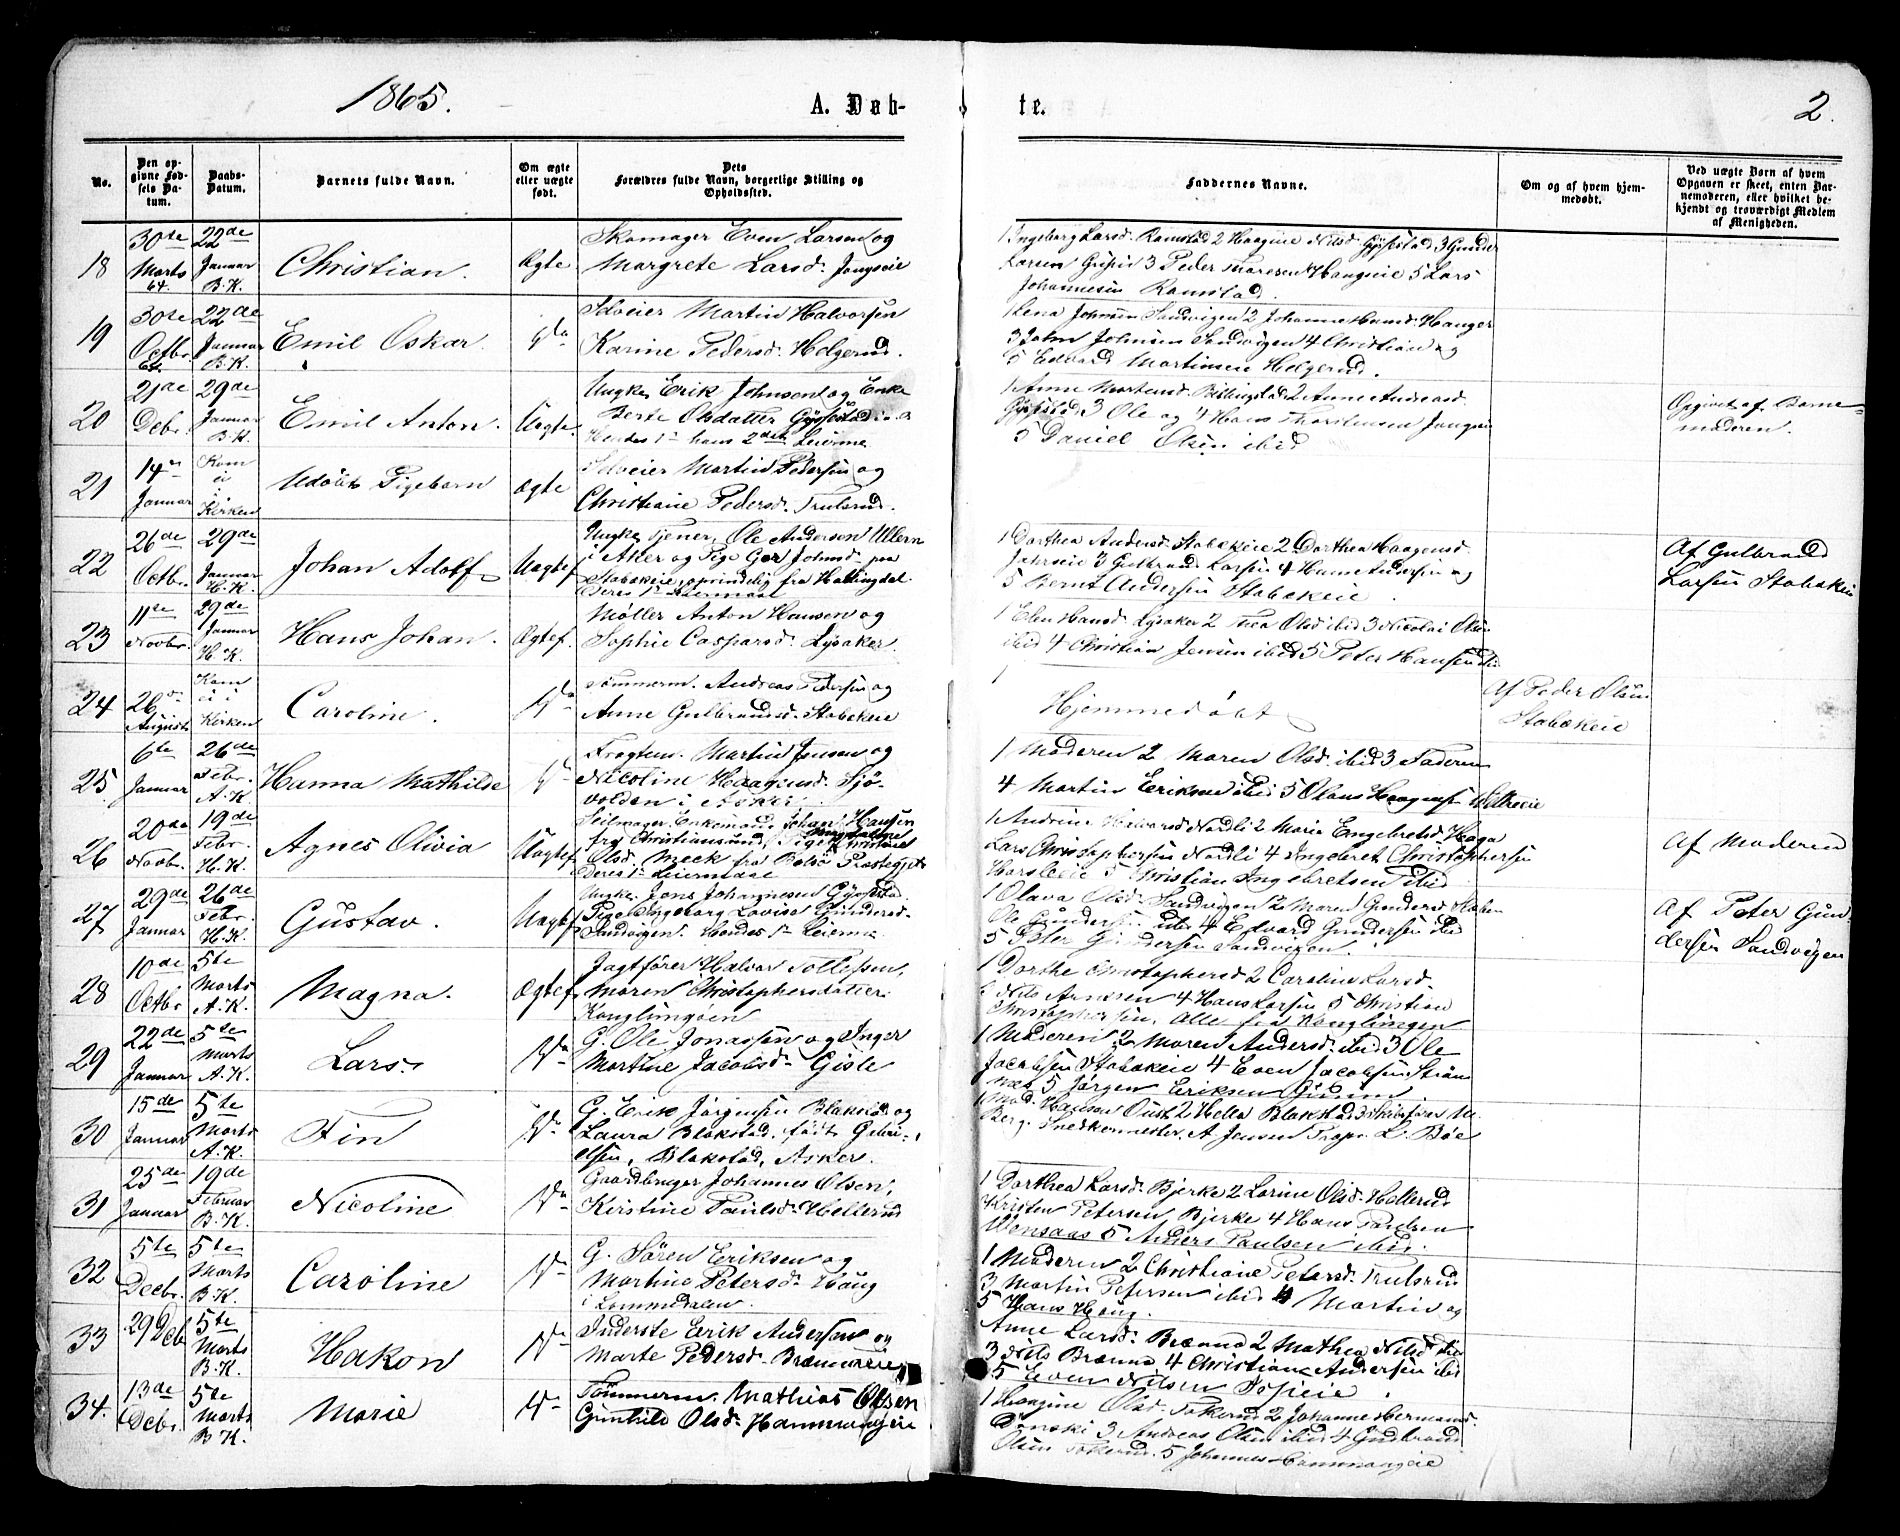 1865.
A. Døb-
te.
2.
No.
Den op-
givne Fød-
sels Da-
tum.
Daabs-
Datum.
Barnets fulde Navn.
Om ægte
eller uægte
født.
Dets
Forældres fulde Navn, borgerlige Stilling og
Opholdssted.
Faddernes Navne.
Om og af hvem hjem-
medøbt.
Ved uægte Børn af hvem
Opgaven er skeet, enten Bar-
nemoderen, eller hvilket be-
kjendt og troværdigt Medlem
af Menigheden.
18
30te
Marts
64.
22de
Januar
B.K.
Christian.
Ægte
Skomager Even Larsen og
Margrete Larsd.
1 Ingeborg Larsd. Ramstad 2
Johannesen Ramstad.
19
30te
Octbr.
64.
22de
Januar
B.K.
Emil Oskar.
Do
Selveier Martin Halvorsen
Karine Pedersd. Helgerud.
3 John Johnsen Sandvigen 4 Christian og
5 Edvard Martinseie Helgerud.
20
21de
Debr.
29de
Januar
B.K.
Emil Anton.
Uægte.
Ungk. Erik Johnsen og Enke
Berte Olsdatter
Hendes 1ste hans 2det Leierm.
1 Anne Mortensd. Billingstad 2 Anne Andreasd.
3 Ole og 4 Hans Thorstensen
5 Daniel Olsen ibid
Opgivet af Barne-
moderen.
21
14de
Januar
Kom
ei
i
Kirken
Udøbt Pigebarn
Ægte
Selveier Martin Pedersen og
Christiane Pedersd. Trulsrud.
22
26de
Octbr.
29de
Januar
H.K.
Johan Adolf
Uægtef
Ungk. Tjener, Ole Andersen Ullern
i Aker og Pige Johnsd. paa
Stabækeie, oprindelig fra Hallingdal.
Deres 1ste Leiermaal
1 Dorthea Andersd. Stabækeie 2 Dorthea Haagensd.
3 Gulbrand Larsen 4 Hans Andersen og
5 Bernt Andersen Stabækeie.
Af Gulbrand
Larsen Stabækeie
23
11te
Novbr.
29de
Januar
H.K.
Hans Johan.
Ægtef.
Møller Anton Hansen og
Sophie Caspersd. Lysaker.
1 Elen Hansd. Lysaker 2 Olsd ibid 3 Nicolai Olsen
ibid 4 Christian Jensen ibid 5 Peter Hansen ibid
24
26de
August
Kom
ei i
Kirken
Caroline.
Do
Tømmerm. Andreas Pedersen og
Anne Gulbransd. Stabækeie
Hjemmedøbt
Af Peder Olsen
Stabækeie
25
6te
Januar
26de
Febr.
A.K.
Hanna Mathilde
Do
Fragtem. Martin Jensen og
Nicoline Haagensd. Sjø-
volden i Asker.
1 Moderen 2 Maren Olsd. ibid 3 Faderen
4 Martin Eriksen ibid 5 Olaus Haagensen
26
20de
Novbr.
19de
Febr.
H.K.
Agnes Olivia
Uægtef
Seilmager, Enkemand, Johan Hansen
fra Christiansund, Pige Christine
Olsd. Meek fra Bolsø Præstegj.
Deres 1ste Leiermaal
Lars Christophersen Nordli 4 Ingebret Christophersen
5 Christian Ingebretsen ibid
Af Moderen
27
29de
Januar
26de
Febr.
H.K.
Gustav.
Uægtef
Ungk. Jens Johannesen
Pige Ingeborg Lovise Gundersd.
Sandvigen. Hendes 1ste Leierm.
1 Olava Olsd. Sandvigen 2 Maren Gundersd.
Ole Gundersen ibid 4 Edvard Gundersen ibid
5 Peter Gundersen Sandvigen.
Af Peter Gun-
dersen Sandvigen
28
10de
Octbr
5te
Marts
A.K.
Magna.
Ægtef
Jagtfører Halvor Tollefsen,
Maren Christophersdatter.
Konglungøen
1 Dorthe Christophersd 2 Caroline Larsd.
3 Nils Arnesen 4 Hans Larsen 5 Christian
Christophersen. Alle fra Konglungen
29
22de
Januar
5te
Marts
A.K.
Lars
Do
G. Ole Jonassen og Inger
Martine Jacobsd. Gisle
1 Moderen 2 Maren Andersd. ibid 3 Ole
Jacobsen Stabækeie 4 Even Jacobsen
5 Jørgen Eriksen
30
15de
Januar
5te
Marts
A.K.
Fin
Do
G. Erik Jørgensen Blakstad og
Laura Blakstad, født Gabri-
elsen, Blakstad, Asker.
1 Mad. Hansen Oust 2 Helle Blakstad 3
Berg. Snedkermester A. Jensen Propr. L. Bøe
31
25de
Januar
19de
Februar
B.K.
Nicoline
Do
Gaardbruger Johannes Olsen,
Kirstine Paulsd. Hellerud
1 Dorthea Larsd. Bjerke 2 Lorine Olsd. Hellerud
Kristen Petersen Bjerke 4 Hans Paulsen
Wensaas 5 Anders Paulsen ibid.
32
5te
Decbr.
5te
Marts
B.K.
Caroline
Do
G. Søren Eriksen og
Martine Petersd. Haug
i Lommedalen.
1 Moderen 2 Christiane Petersd. Trulsrud
3 Martin Petersen ibid 4 Martin og
5 Hans Haug.
33
29 Debr
5te
Marts
B.K.
Hakon
Do
Inderste Erik Andersen og
Marte Pedersd.
Anne Larsd. Brænna 2 Mathea Nilsd. ibid
3 Nils Brænna 4 Christian Andersen ibid
5 Even Nilsen
34.
13de
Debr.
5te
Marts
B.K.
Marie
Do
Tømmerm. Mathias Olsen
Gunhild Olsd. Hammangeie
1 Olsd. 2 Johanne Hermansd.
3 Andreas Olsen ibid 4 Gudbrand
Olsen 5 Johannes Hammangeie